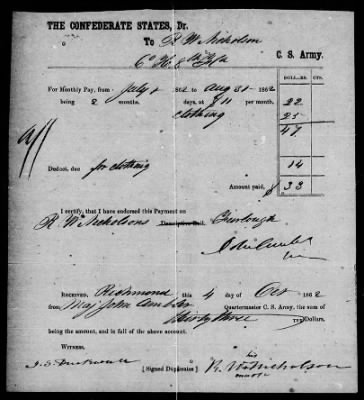 THE CONFEDERATE STATES, Dr.
To R. W. Nicholson
Co H. 8th
C. S. Army.
DOLLARS. CTS.
For Monthly Pay, from July 1 1862 to Aug 31 1862
being 2 months. days, at $11 per month, 22
clothing 25
47
Deduct, due for clothing 14
Amount paid, $ 33
I certify, that I have endorsed this Payment on
R. W. Nicholsons Descriptive Roll. Furlough
RECEIVED, Richmond this 4 day of Oct 1862
from Maj John Ambler Quartermaster C. S. Army, the sum of
thirty three Dollars,
being the amount, and in full of the above account.
WITNESS.
his
[Signed Duplicates] R. W. Nicholson
mark